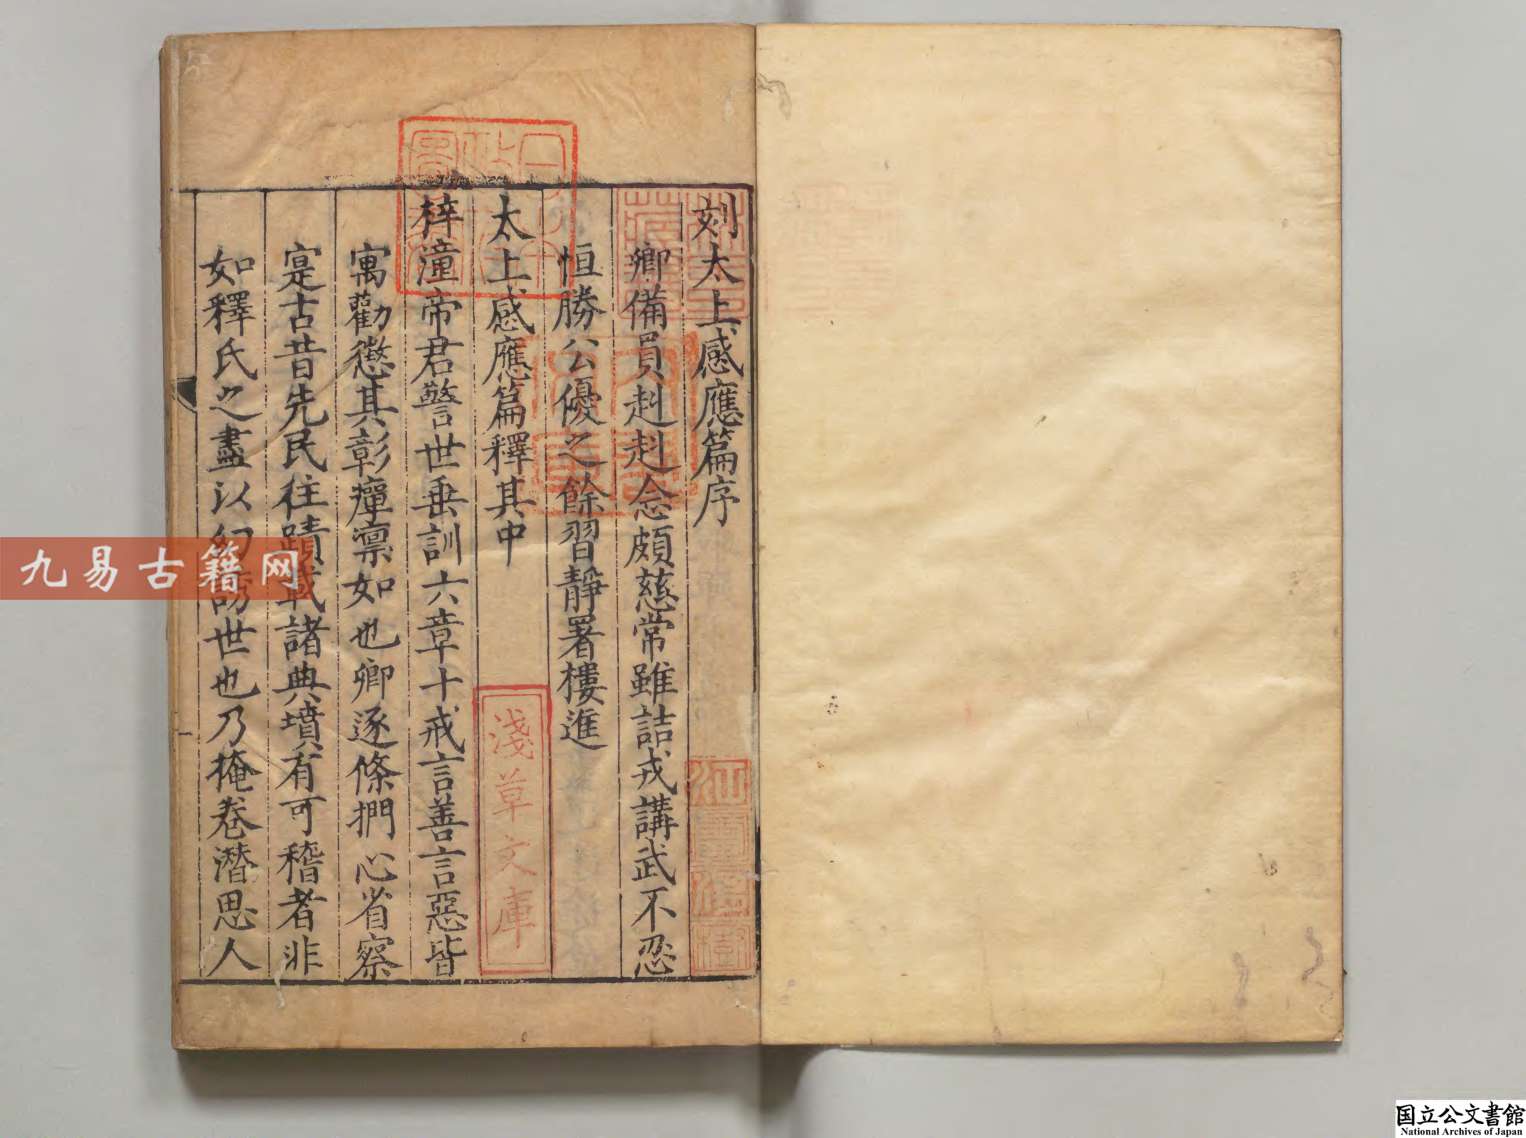 刻太上感應篇序
卿備員赳赳念頗慈常雖詰戎講武不忍
恒勝公優之餘習靜署樓進
太上感應篇釋其中
梓潼帝君警世垂訓六章十戒言善言惡皆
寓勸懲其彰癉凛如也卿逐條捫心省察
寔古昔先民往蹟載諸典墳有可稽者非
如釋氏之盡以幻謗世也乃掩卷潛思人
淺草文庫
九易古籍网
国立公文書館
National Archives of Japan